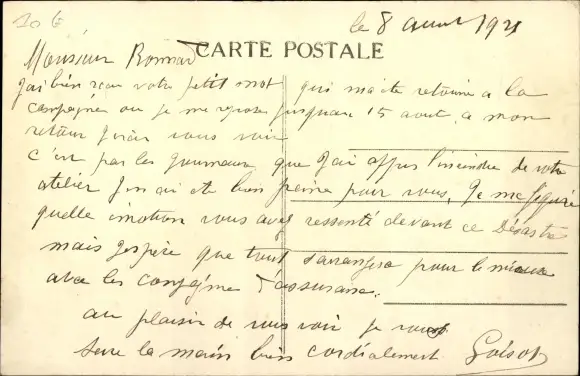 20 €
le 8 aout 1921
CARTE POSTALE
Monsieur Bonnard
J'ai bien recu votre petit mot qui m'a ete retourne a la
campagne ou je me repose jusquau 15 aout, a mon
retour j'irai vous voir
c'est par les journeaux que j'ai appris l'incendie de votre
atelier j'en ai ete bien peine pour vous, Je me figure
quelle emotion vous avez ressenté devant ce Désastre
mais j'espère que tout s'arrangera pour le mieux
avec les d'assurance.
au plaisir de vous voir je vous
serre la main bien cordialement